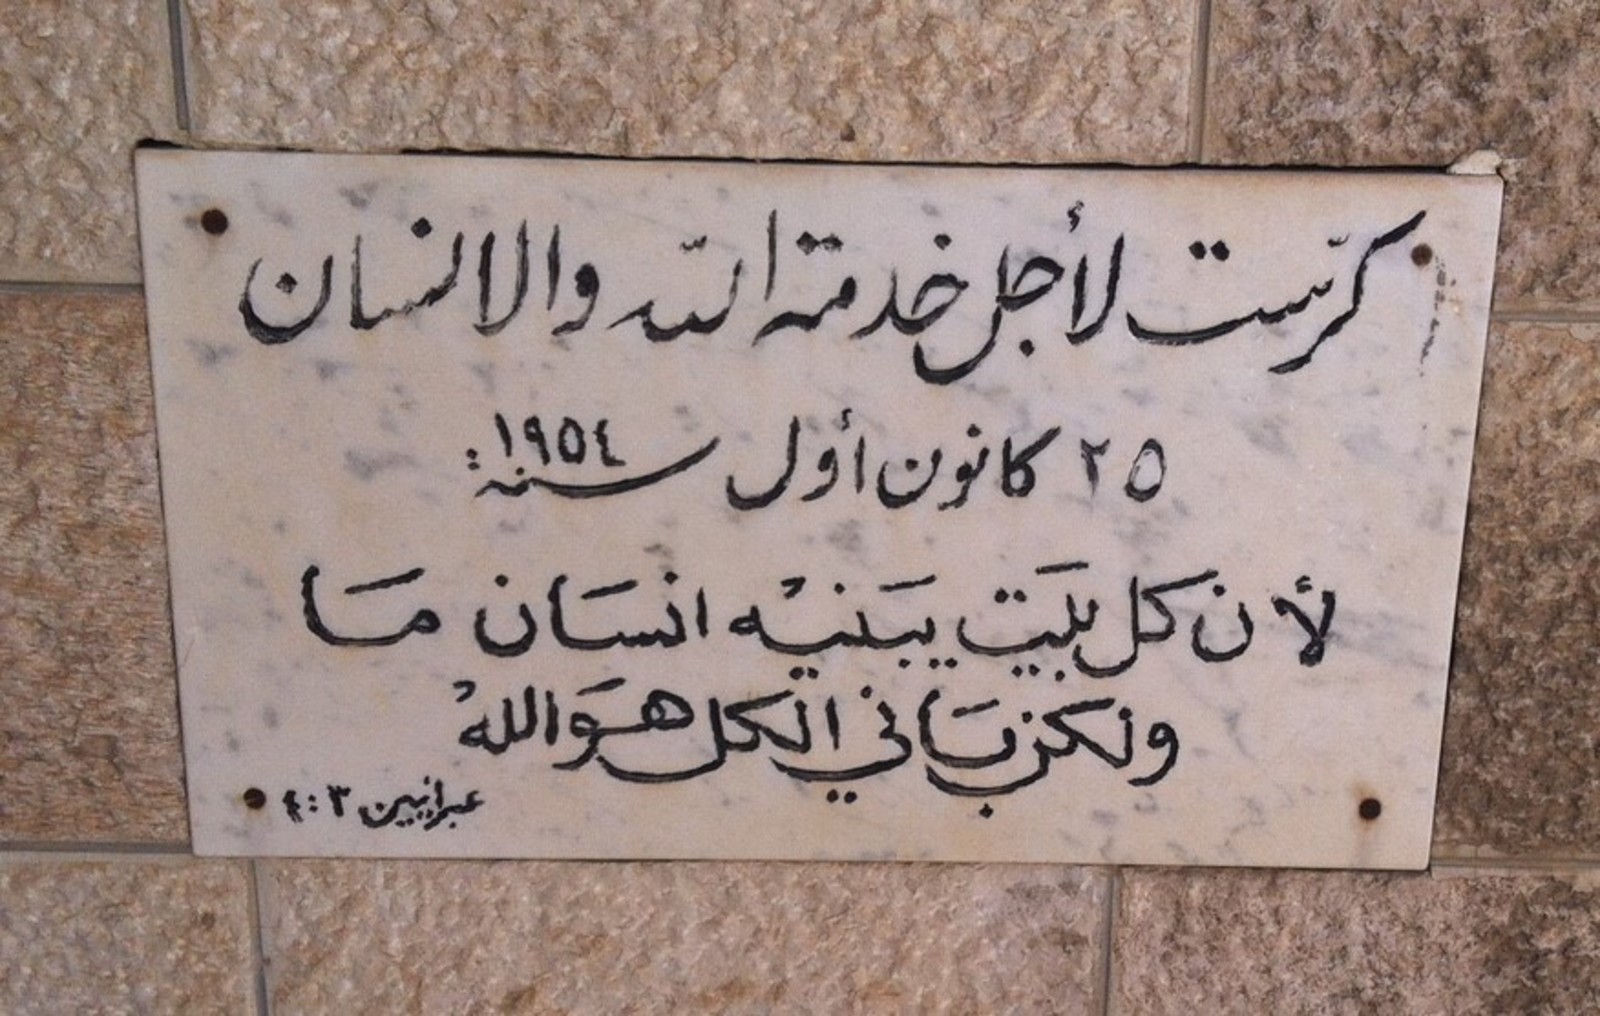 كرّست لأجل خدمة الله والانسان
٢٥ كانون أول سنة ١٩٥٤:
لأن كل بَيَت يبَنيهُ انسَان مَا
ولكن بَاني الكل هوَ اللهُ
عبرانيين ٣:٤